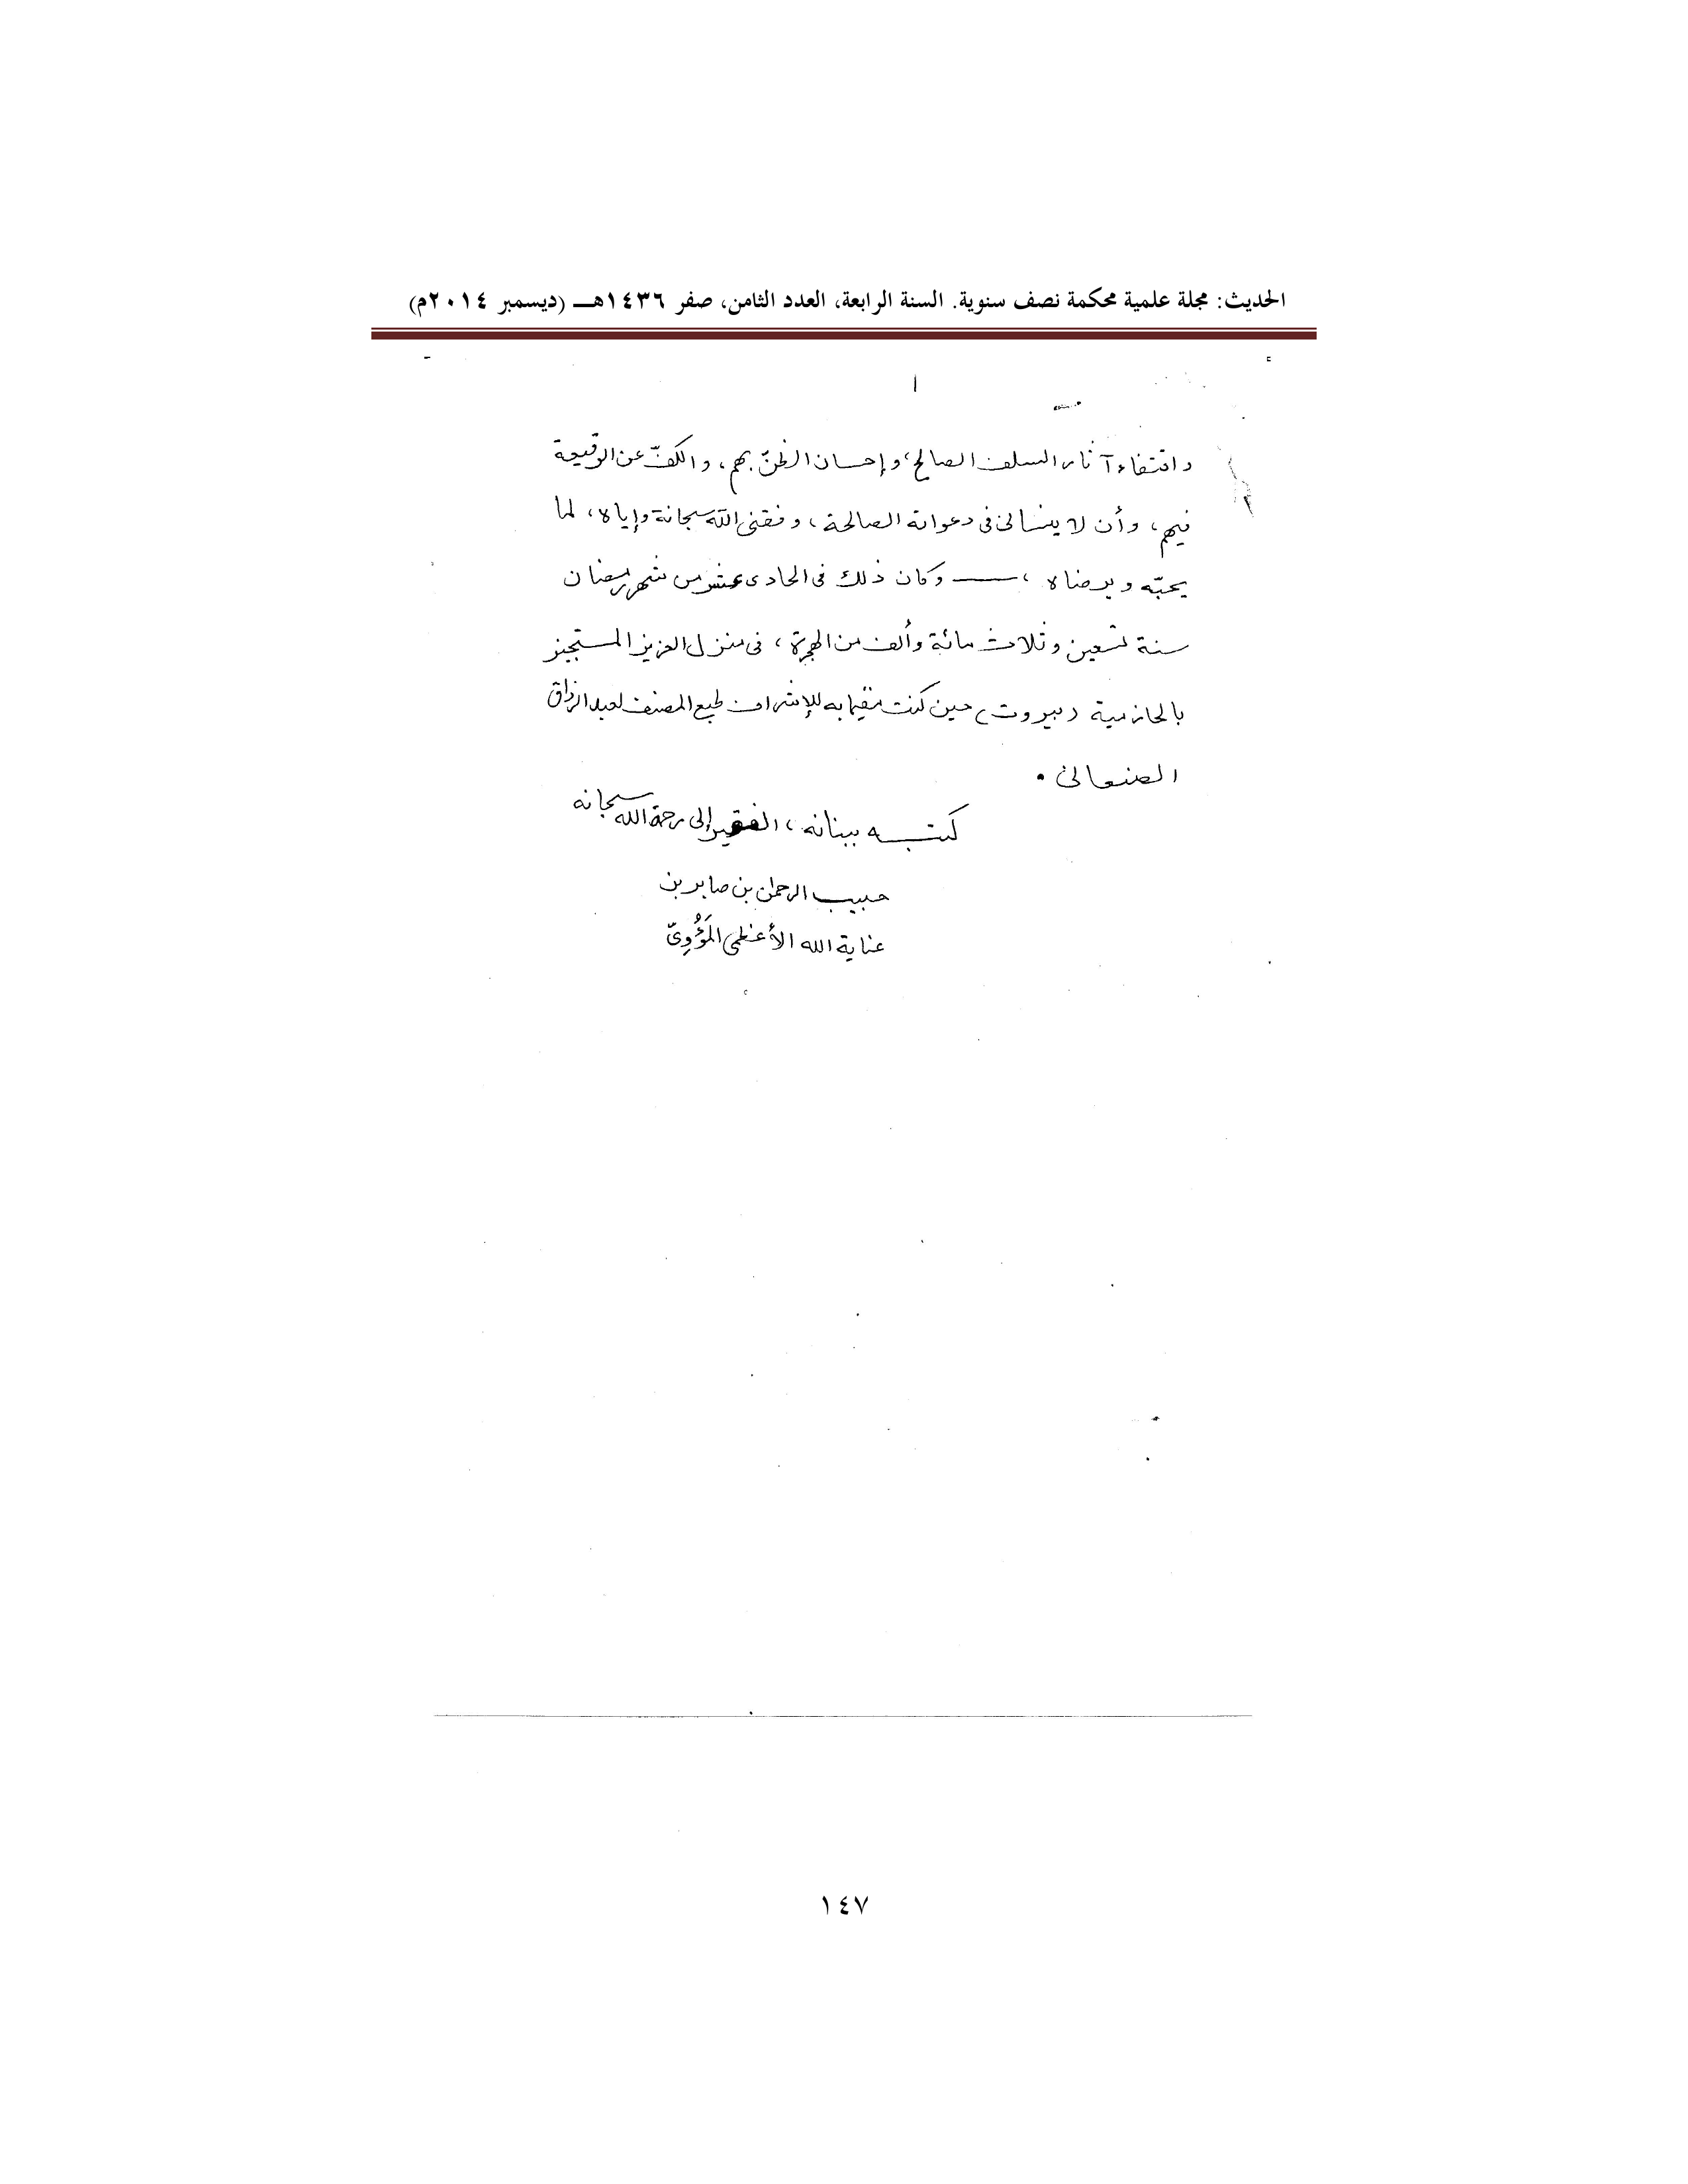 الحديث: مجلة علمية محكمة نصف سنوية. السنة الرابعة، العدد الثامن، صفر ١٤٣٦هـــ (ديسمبر ٢٠١٤م)
واقتفاء آثار السلف الصالح، وإحسان الظنّ بهم، والكفّ عن الوقيعة
فيهم، وأن لا ينسانى فى دعواته الصالحة، وفقنى الله سبحانه وإياه، لما
يحبّه ويرضاه، ــــ وكان ذلك فى الحادى عشر من شهر رمضان
سنة تسعين وثلاث مائة وألف من الهجرة، فى منزل العزيز المستجيز
بالحازمية (بيروت) حين كنت مقيما به للإشراف لطبع المصنف لعبد الرزاق
الصنعانى.
كتبـــه ببنانه، الفقير إلى رحمة الله سبحانه
حبيب الرحمن بن صابر بن
عناية الله الأعظمى المَؤُوِىّ
١٤٧